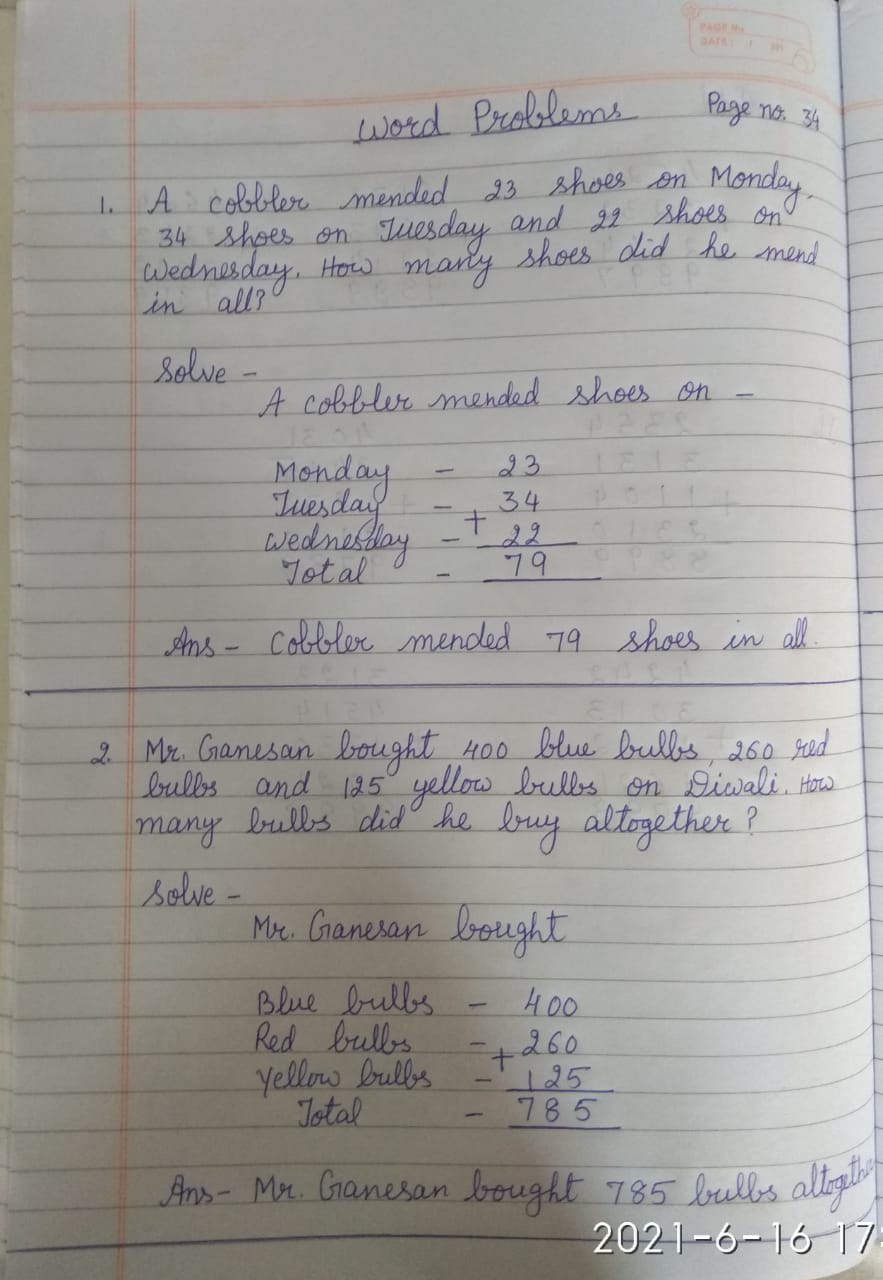 PAGE No.
DATE:
Word Problems Page no. 34
1. A cobbler mended 23 shoes on Monday,
34 shoes on Tuesday and 22 shoes on
Wednesday. How many shoes did he mend
in all?
Solve -
A cobbler mended shoes on -
Monday - 23
Tuesday - 34
Wednesday - + 22
Total - 79
Ans - Cobbler mended 79 shoes in all.
2. Mr. Ganesan bought 400 blue bulbs, 260 red
bulbs and 125 yellow bulbs on Diwali. How
many bulbs did he buy altogether?
Solve -
Mr. Ganesan bought
Blue bulbs - 400
Red bulbs - 260
Yellow bulbs - + 125
Total - 785
Ans - Mr. Ganesan bought 785 bulbs altogethe
2021-6-16 17: